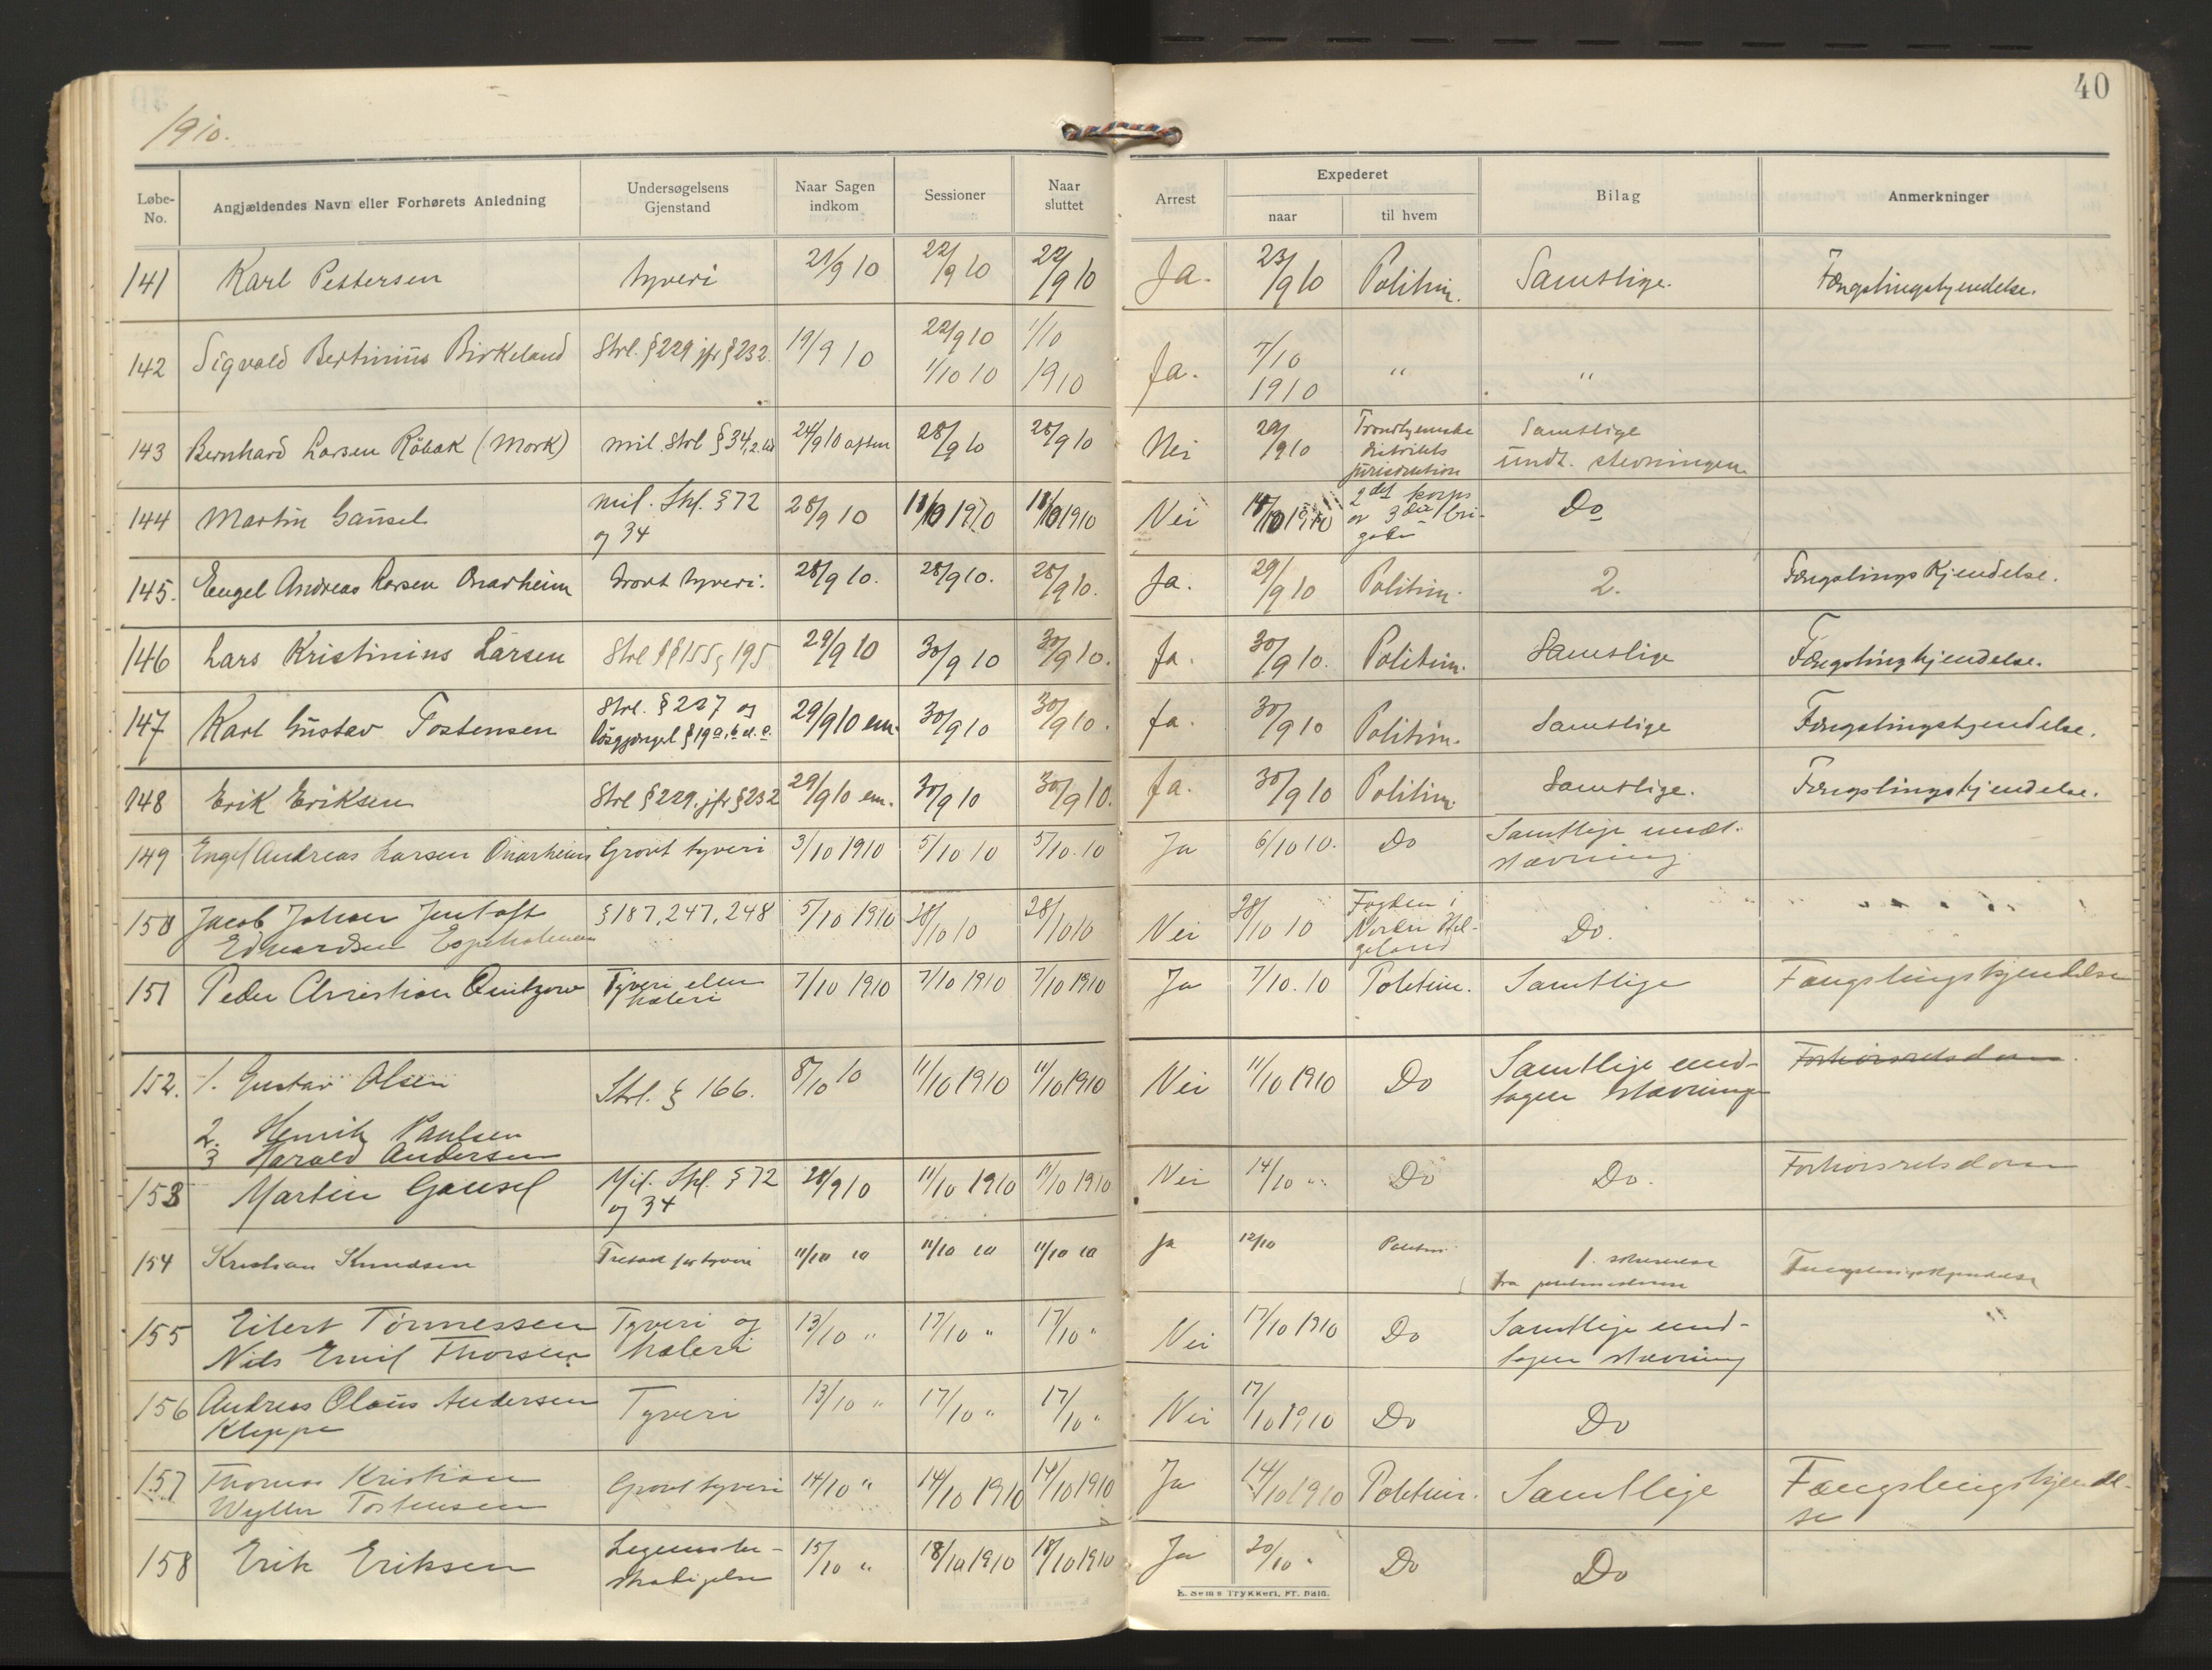 40
1910.
Løbe-No. Angjældendes Navn eller Forhørets Anledning Undersøgelsens Gjenstand Naar Sagen indkom Sessioner Naar sluttet Arrest Expederet naar til hvem Bilag Anmerkninger
141 Karl Pettersen tyveri 21/9 10 22/9 10 22/9 10 Ja. 23/9 10 Politim. Samtlige. Fængslingskjendelse.
142 Sigvald Bertinius Birkeland Strl. § 229 jfr § 232. 19/9 10 22/9 10 1/10 10 1/10 1910 Ja. 7/10 1910 " "
143 Bernhard Larsen Råbak (Mork) mil Strl § 34, 2. led 24/9 10 aften 28/9 10 28/9 10 Nei 29/9 10 Trondhjemske distrikts jurisdiktion Samtlige undt. stevningen
144 Martin Gausel mil. Stl. § 72 og 34 28/9 10 11/10 1910 11/10 1910 Nei 14/10 1910 2det korps av 3die brigade Do
145. Engel Andreas Larsen Onarheim Grovt tyveri. 28/9 10. 28/9 10. 28/9 10. Ja. 29/9 10 Politim. 2. Fængslings Kjendelse.
146 Lars Kristinius Larsen Strl §§ 155, 195 29/9 10 30/9 10 30/9 10. Ja. 30/9 10. Politim. Samtlige Fængslingkjendelse.
147 Karl Gustav Tostensen Strl. § 227 og løsgjængel § 19 a, b og c. 29/9 10 em. 30/9 10 30/9 10. Ja. 30/9 10 Politim. Samtlige Fængslingskjendelse.
148 Erik Eriksen Strl § 229. jfr § 232 29/9 10 em. 30/9 10 30/9 10. Ja. 30/9 10 Politim. Samtlige. Fængslingskjendelse.
149 Engel Andreas Larsen Onarheim Grovt tyveri 3/10 1910 5/10 10 5/10. 10 Ja 6/10 10. Do Samtlige undt. stævning
150 Jacob Johan Edvardsen § 187, 247, 248 5/10 1910 28/10 10 28/10 10 Nei 28/10 10 Fogden i Nordre Helgeland Do.
151 Peder Christian Tyveri eller hæleri 7/10 1910 7/10 1910 7/10 1910 Ja 7/10. 10 Politim. Samtlige Fængslingskjendelse
152. 1. Gustav Olsen Strl. § 166. 8/10 10 11/10 1910 11/10 1910 Nei 11/10 1910 Do Samtlige undtagen stævninge Forhørsretsdom.
2. Henrik Paulsen
3 Harald Andersen
153 Martin Gausel Mil. Stl. § 72 og 34 28/9 10 11/10 1910 11/10 1910 Nei 14/10 " Do Do. Forhørsretsdom
154 Kristian Knudsen for tyveri 11/10 10 11/10 10 11/10 10 Ja 12/10 Politim. 1. skrivelse fra Fængslingskjendelse
155 Eilert Tønnessen Nils Emil Thorsen. Tyveri og hæleri 13/10 " 17/10 " 17/10 " Nei 17/10 1910 Do Samtlige undtagen stævning
156 Andreas Olaus Andersen Kleppe Tyveri 13/10 " 17/10 " 17/10 " Nei 17/10 1910 Do Do
157 Thomas Kristian Wyller Tostensen Grovt tyveri 14/10 " 14/10 1910 14/10 1910 Ja 14/10 1910 Politim. Samtlige Fængslingskjendelse
158 Erik Eriksen Legemsbeskadigelse 15/10 " 18/10 1910 18/10 1910 Ja 20/10 " Do Do
E. Sems Trykkeri, Fr.hald.